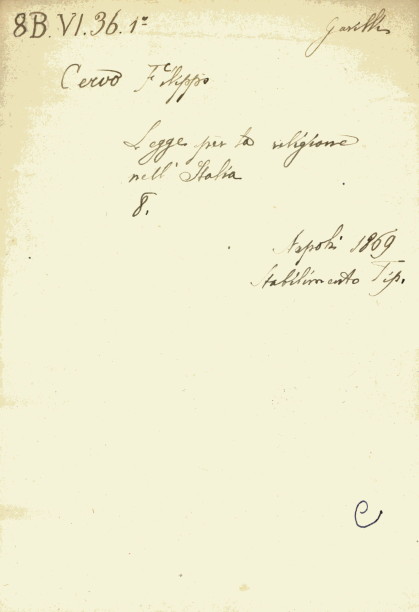 8B.VI.36.1º
Cervo Filippo
Legge per la religione
nell' Italia
8.
Napoli 1869
Stabilimento Tip.
C